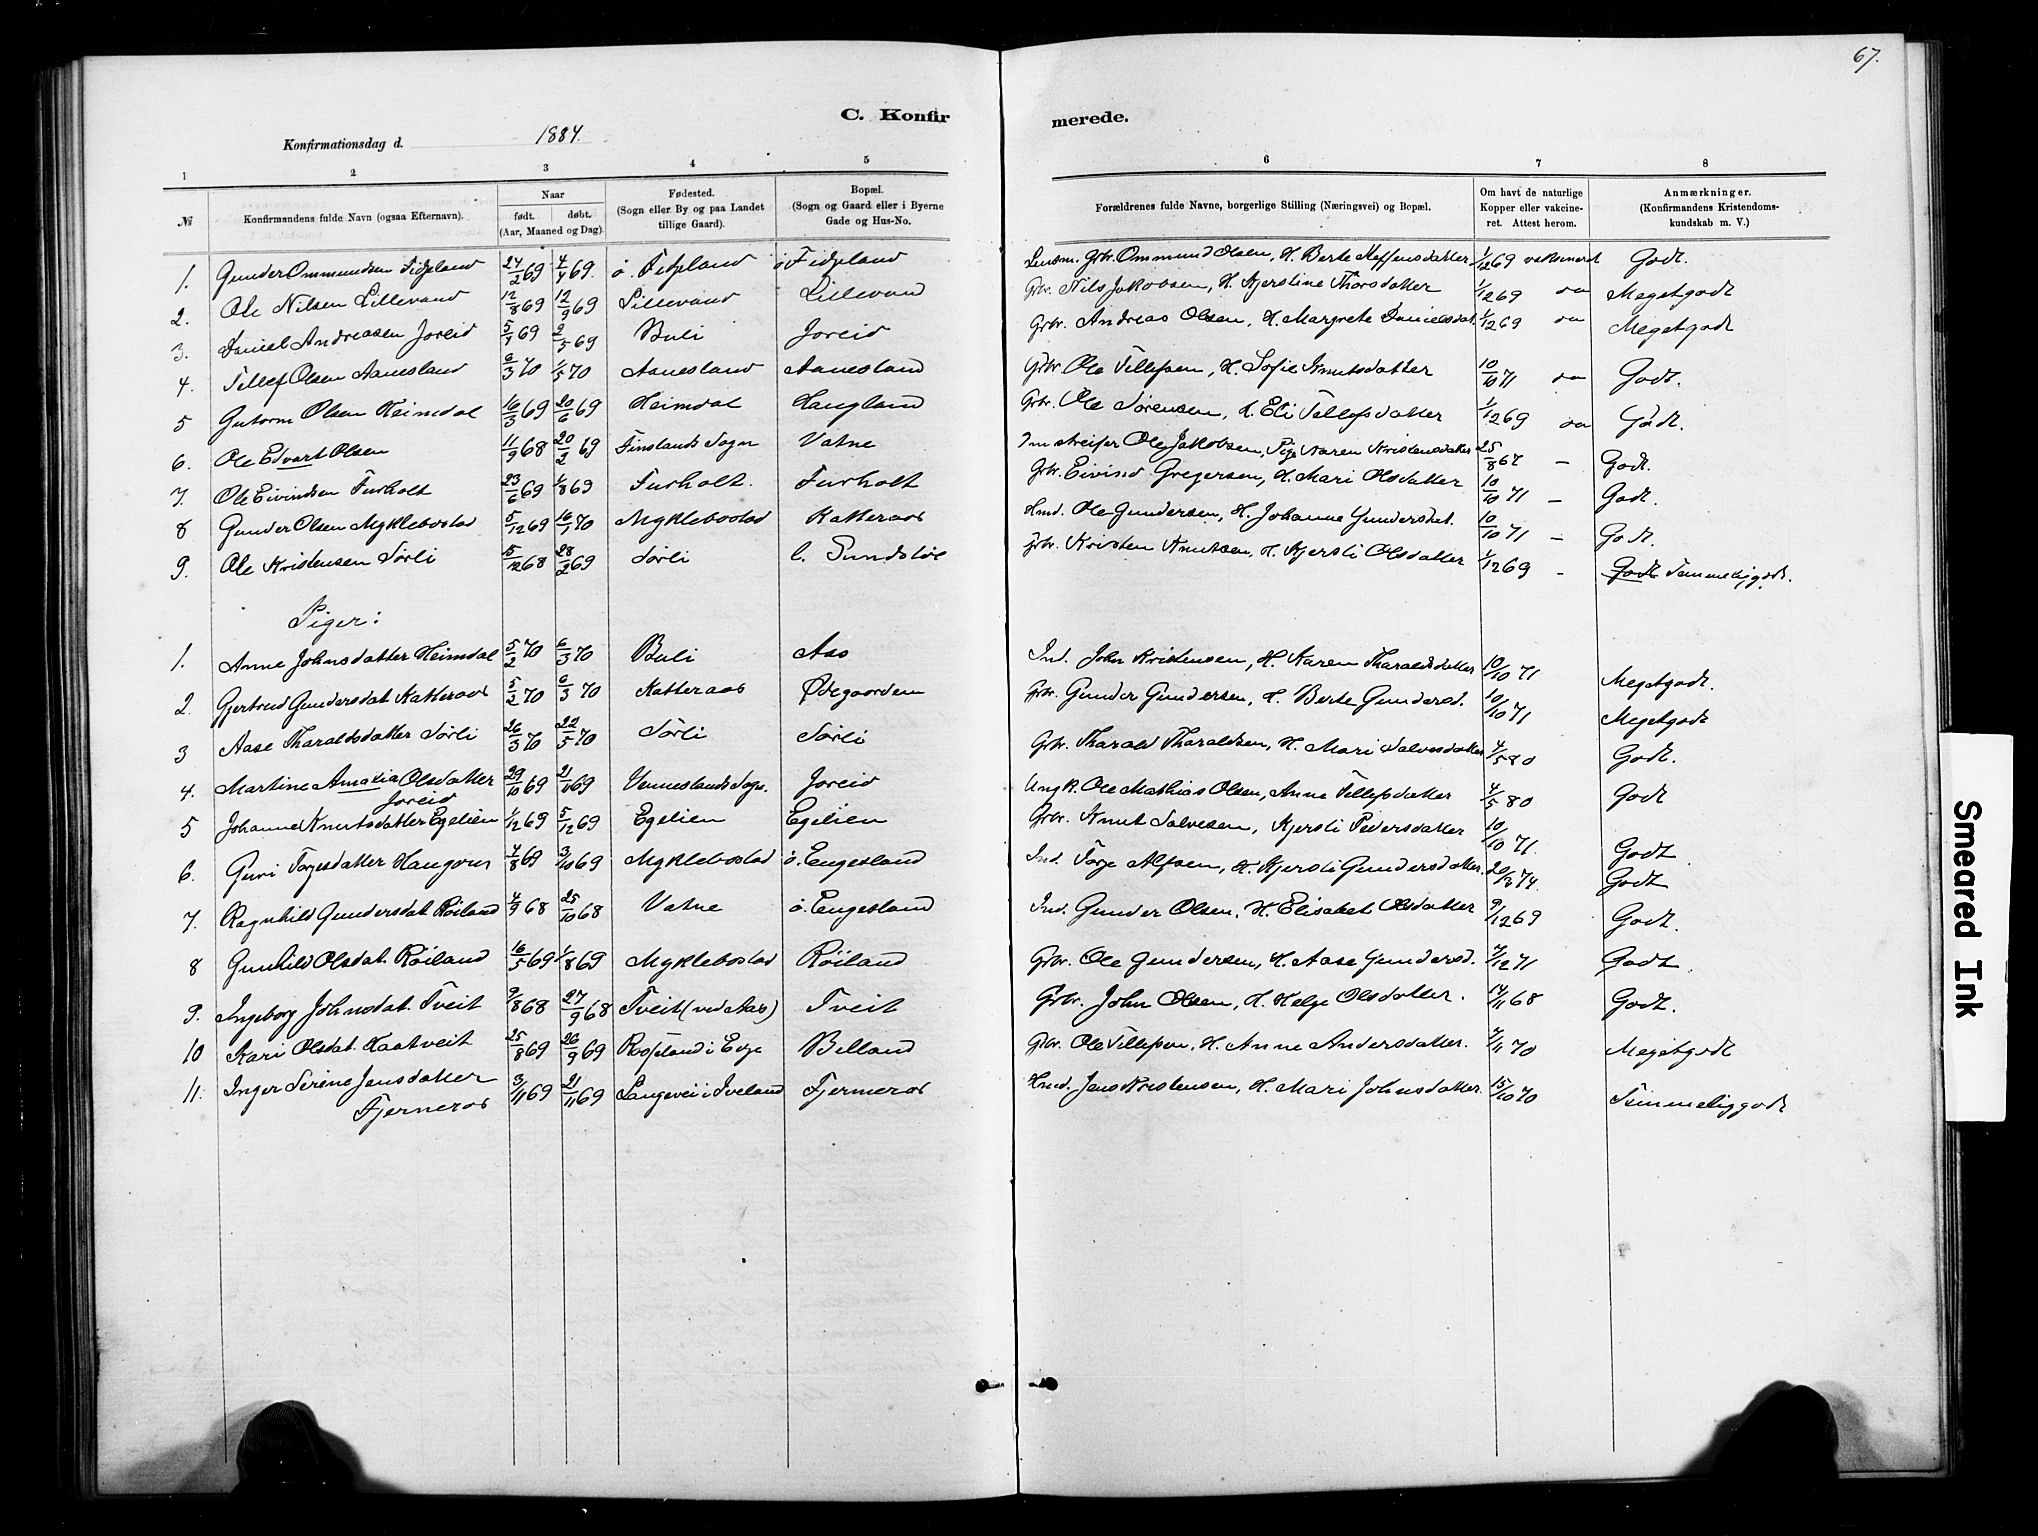 67.
C. Konfirmerede.
Konfirmationsdag d. 1884.
1 2 3 4 5 6 7 8
№ Konfirmandens fulde Navn (ogsaa Efternavn). Naar født. døbt. (Aar, Maaned og Dag). Fødested. (Sogn eller By og paa Landet tillige Gaard). Bopæl. (Sogn og Gaard eller i Byerne Gade og Hus-No. Forældrenes fulde Navne, borgerlige Stilling (Næringsvei) og Bopæl. Om havt de naturlige Kopper eller vakcineret. Attest herom. Anmærkninger. (Konfirmandens Kristendomskundskab m. V.)
1. Gunder Ommundsen Fidjeland 24/2 69 4/4 69. ö. Fidjeland ö Fidjeland Lensm. Grbr. Ommund Olsen, H. Berte Steffensdatter 1/12 69 vaksineret Godt.
2. Ole Nilsen Lillevand 12/8 69 12/9 69 Lillevand Lillevand Grbr. Nils Jakobsen, H. Kjerstine Tharsdatter 1/12 69 Megetgodt
3. Daniel Andreassen Joreid 69 2/5 69 Buli Joreid Grbr. Andreas Olsen, H. Margrete Danielsdat. 1/12 69 Megetgodt
4. Tellef Olsen Aanesland 6/3 70 1/5 70 Aanesland Aanesland Grbr. Ole Tellefsen, H. Sofie Knutsdatter 10/10 71 Godt.
5 Gutorm Olsen Heimdal 16/3 69 20/6 69 Heimdal Haugland Grbr. Ole Sørensen, H. Eli Tellefsdatter 1/12 69 Godt.
6. Ole Edvart Olsen 11/9 68 20/2 69 Finslands Sogn Vatne Ole Jakobsen, Pige Karen Kristensdatter 25/8 67 – Godt.
7. Ole Eivindsen Furholt 23/6 69 1/8 69 Furholt. Furholt Grbr. Eivind Gregersen, H. Mari Olsdatter 10/10 71 – Godt.
8 Gunder Olsen Myklebostad 5/12 69 16/1 70 Myklebostad Katteraas Hmd. Ole Gundersen, H. Johanne Gundersdat. 10/10 71 – Godt.
9. Ole Kristensen Sørli 15/12 68 28/2 69 Sørli l. Sundslöe Grbr. Kristen Knutsen, H. Kjersti Olsdatter 1/12 69 - Godt Temmeliggodt.
Piger:
1. Anne Johnsdatter Heimdal 5/2 70 6/3 70 Buli Aas Ind. John Kristensen, H. Karen Tharaldsdatter 10/10 71 Megetgodt.
2. Gjertrud Gundersdat. Katteraas 5/2 70 6/3 70 Katteraas Ødegaarden Grbr. Gunder Gundersen, H. Berte Gundersd. 10/10 71 Megetgodt
3 Aase Tharaldsdatter Sørli 26/3 70 22/5 70 Sørli Sørli Grbr. Tharald Tharaldsen, H. Mari Salvesdatter 4/5 80 Godt.
4. Martine Amaxia Olsdatter 29/10 69 21/11 69 Venneslands Sogn. Joreid Ungk. Ole Mathias Olsen, Anne Tellefsdatter 4/5 80 Godt
Joreid
5 Johanne Knutsdatter Egelien 1/12 69 5/12 69 Egelien Egelien Grbr. Knut Salvesen, Kjersti Pedersdatter 10/10 71. Godt
6. Guri Torjesdatter 4/8 69 3/10 69 Myklebostad ö. Engesland Ind. Torje Alfsen, H. Kjersti Gundersdatter. 20/3 74. Godt
7. Ragnhild Gundersdat. Röiland 4/9 68 25/10 68 Vatne ö. Engesland Ind. Gunder Olsen, H. Elisabet Olsdatter 9/12 69 Godt.
8 Gunhild Olsdat. Röiland 16/5 69 1/8 69 Myklebostad Röiland Grbr. Ole Gundersen, H. Aase Gundersd. 4/12 71 Godt.
9. Ingeborg Johnsdat. Tveit 9/8 68 27/9 68 Tveit (ved Aas) Tveit Grbr. John Olsen, H. Helge Olsdatter. 14/11 68 Godt.
10 Kari Olsdat. Haatveit 25/8 69 26/9 69 Rosseland i Evje Belland Grbr. Ole Tellefsen, H. Anne Andersdatter. 4/11 70 Megetgodt
11. Inger Serine Jensdatter 3/11 69 21/11 69 Langevei i Iveland Fjermeros Hmd. Jens Kristensen, H. Mari Johnsdatter. 15/10 70 Temmeliggodt
Fjermeros
Smeared Ink